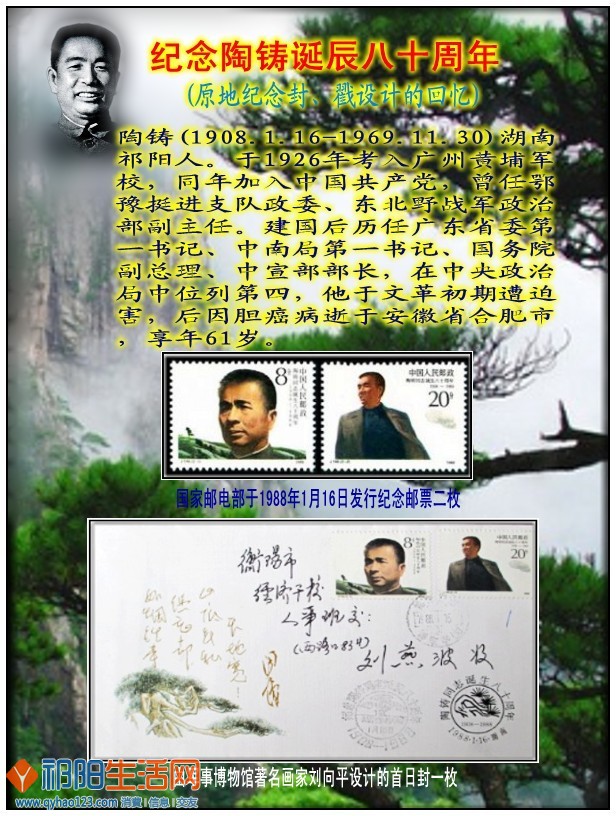 纪念陶铸诞辰八十周年
(原地纪念封、戳设计的回忆)
陶铸(1908.1.16-1969.11.30)湖南
祁阳人。于1926年考入广州黄埔军
校，同年加入中国共产党，曾任鄂
豫挺进支队政委、东北野战军政治
部副主任。建国后历任广东省委第
一书记、中南局第一书记、国务院
副总理、中宣部部长，在中央政治
局中位列第四，他于文革初期遭迫
害，后因胆癌病逝于安徽省合肥市
，享年61岁。
8分
中国人民邮政
陶铸同志诞生八十周年
中国人民邮政
陶铸同志诞生八十周年
20分
国家邮电部于1988年1月16日发行纪念邮票二枚
8分
中国人民邮政
20分
衡陽市
经济干校
人事班交:
刘燕波收
陶铸同志诞生八十周年
1908-1988
1988·1·16·湖南
事博物馆著名画家刘向平设计的首日封一枚
祁阳生活网
www.qyhao123.com 消費 | 信息 | 交友